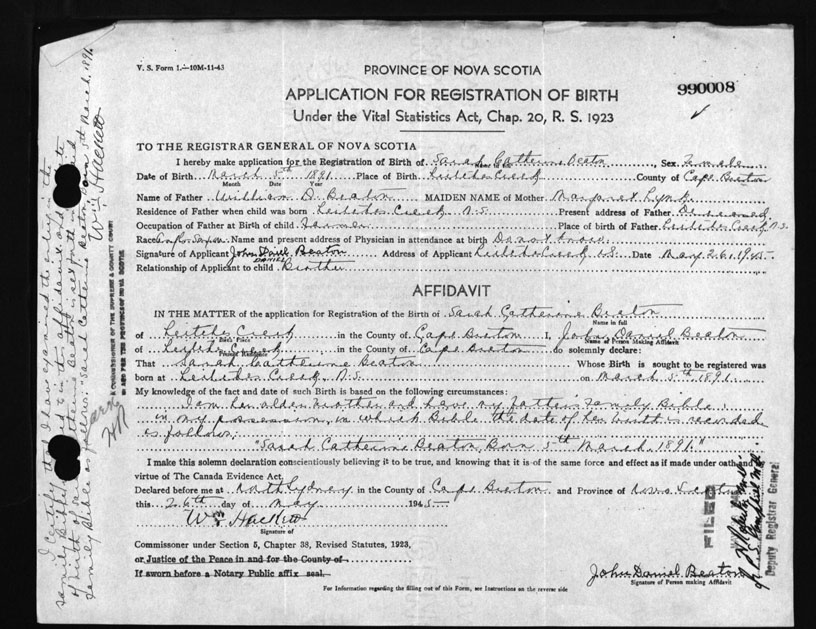 V. S. Form 1.—10M-11-43
PROVINCE OF NOVA SCOTIA
990008
APPLICATION FOR REGISTRATION OF BIRTH
Under the Vital Statistics Act, Chap. 20, R. S. 1923
TO THE REGISTRAR GENERAL OF NOVA SCOTIA
I hereby make application for the Registration of Birth of Sarah Catherine Beaton, Sex Female
Name in full
Date of Birth March 5th 1891 Place of Birth Leitches Creek County of Cape Breton
Month Date Year
Name of Father William D. Beaton MAIDEN NAME of Mother Margaret Lynk
Residence of Father when child was born Leitches Creek N.S. Present address of Father Deceased
Occupation of Father at Birth of child Farmer Place of birth of Father Leitches Creek, N.S.
Race Anglo Saxon Name and present address of Physician in attendance at birth Do not know
Signature of Applicant John Daniel Beaton Address of Applicant Leitches Creek N.S. Date May 26, 1945
DANIEL
Relationship of Applicant to child Brother
AFFIDAVIT
IN THE MATTER of the application for Registration of the Birth of Sarah Catherine Beaton
Name in full
of Leitches Creek in the County of Cape Breton I, John Daniel Beaton
Birth Place Name of Person Making Affidavit
of Leitches Creek, in the County of Cape Breton do solemnly declare:
Present Residence
That Sarah Catherine Beaton Whose Birth is sought to be registered was
born at Leitches Creek, N.S. on March 5th 1891.
My knowledge of the fact and date of such Birth is based on the following circumstances:
I am her older brother and have my fathers Family Bible
in my possession, in which Bible the date of her birth is recorded
as follows:
"Sarah Catherine Beaton Born 5th March, 1891."
I make this solemn declaration conscientiously believing it to be true, and knowing that it is of the same force and effect as if made under oath and by
virtue of The Canada Evidence Act.
Declared before me at North Sydney in the County of Cape Breton and Province of Nova Scotia
this 26th day of May 1945
Wm Hackett
Signature of
Commissioner under Section 5, Chapter 38, Revised Statutes, 1923,
or Justice of the Peace in and for the County of
If sworn before a Notary Public affix seal.
John Daniel Beaton
Signature of Person making Affidavit
For Information regarding the filling out of this Form, see Instructions on the reverse side
I certify that I have examined the entry in the
family Bible
birth of Sarah Catherine Beaton
family Bible as follows: Sarah Catherine Beaton Born 5th March, 1891.
Wm Hackett
A COMMISSIONER OF THE SUPREME & COUNTY COURT
IN AND FOR THE PROVINCE OF NOVA SCOTIA
FILED
Deputy Registrar General